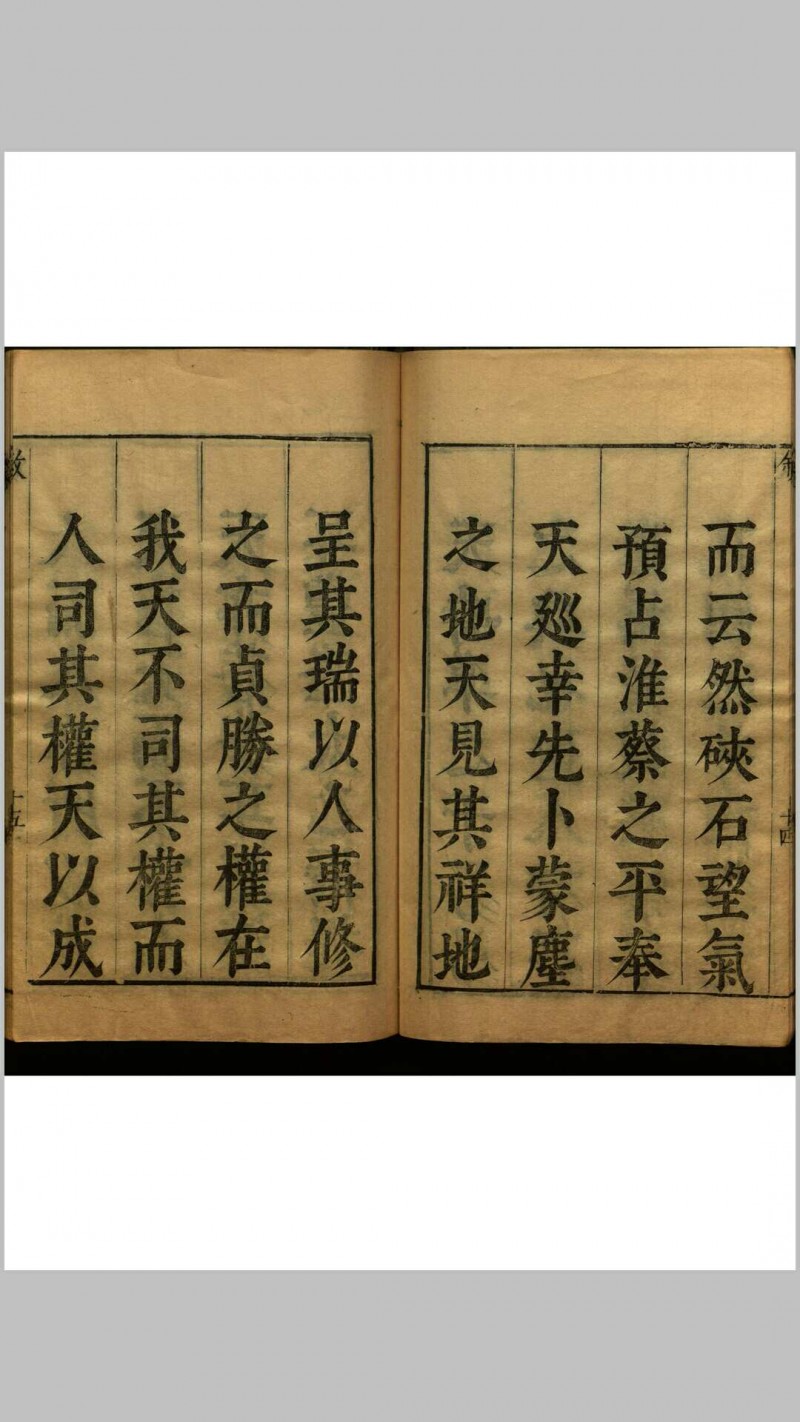 而云然硤石望氣
預占淮蔡之平奉
天廵幸先卜蒙塵
之地天見其祥地
呈其瑞以人事修
之而貞勝之權在
我天不司其權而
人司其權天以成
十四
十五